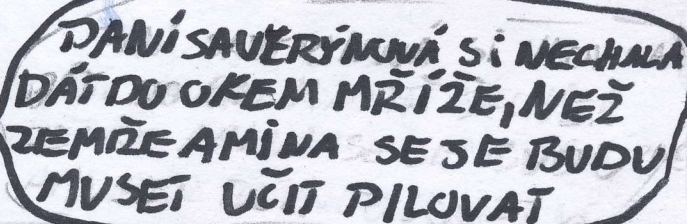 PANÍ SAVĚRÝNOVÁ SI NECHALA
DÁT DO OKEM MŘÍŽE, NEŽ
ZEMŘE AMINA SE JE BUDU
MUSET UČIT PILOVAT